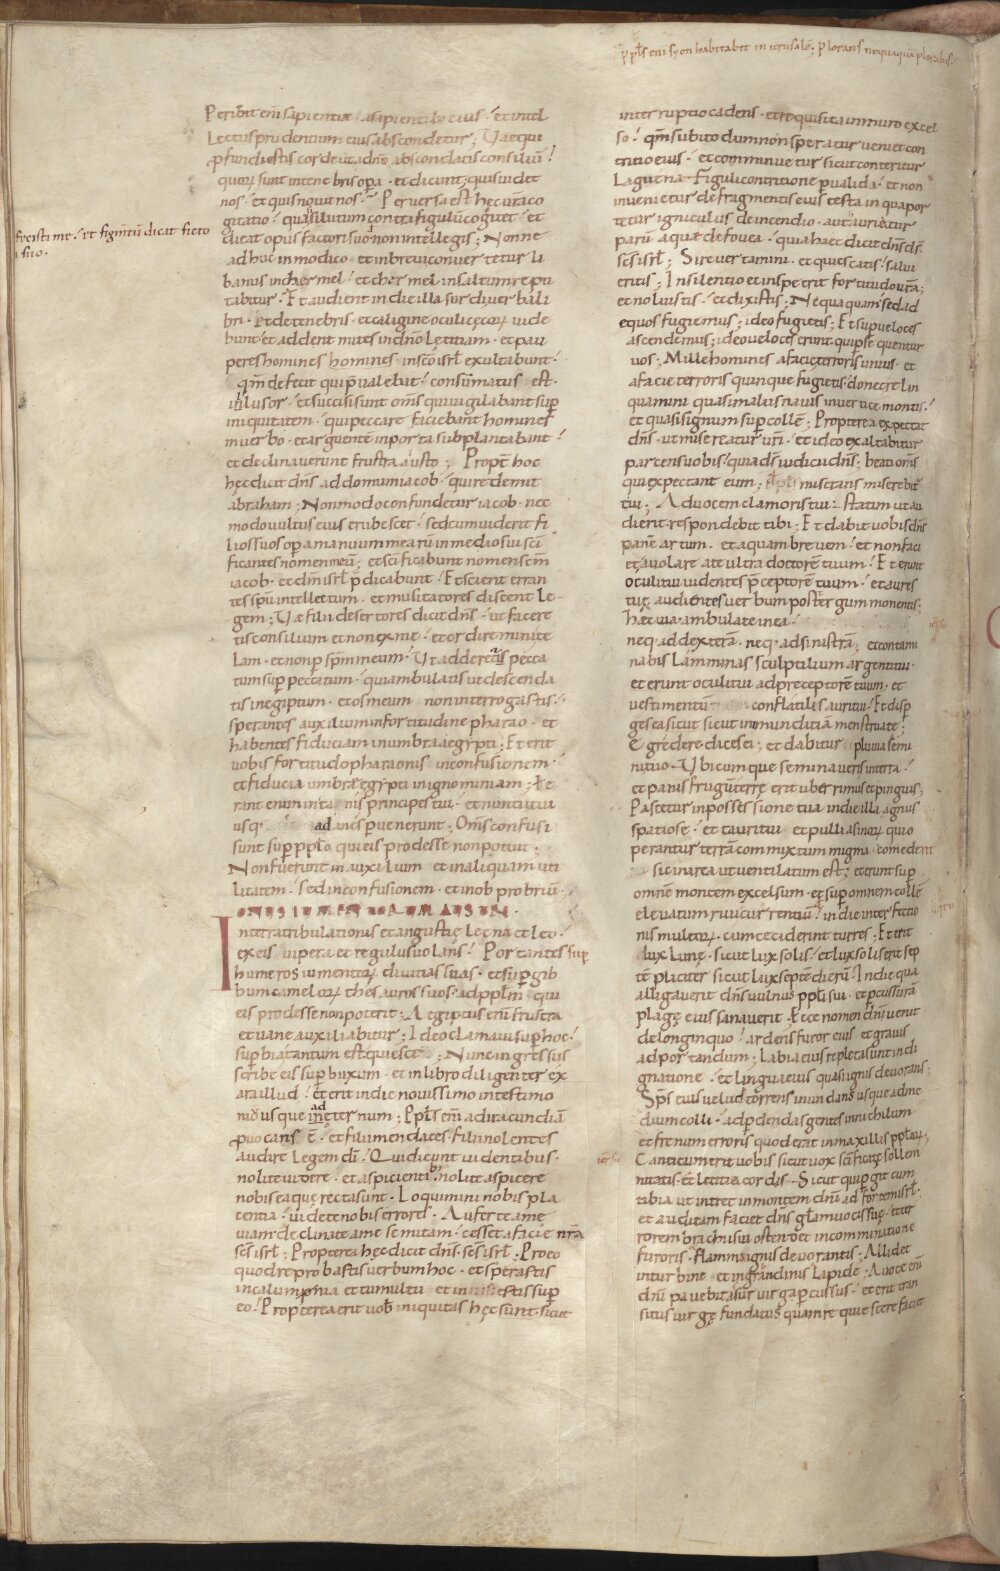 p̄ ppl̄s eni syon habitabit in ierusalē; plorans nequaquā plorabis.
fecisti me·⁊ et figm̄tū dicat ficto
ri suo.
Peribit eni sapientiae asapientib; eius · et intel
lectus prudentum eius abscondetur; Vaequi
pfundi estis corde ut adnō abscondatis consiliū!
quorū sunt intenebris opa · et dicunt; quis uidet
nos · et quis nouit nos · Peruersa est hec uraco
gitatio · quasi lutum contra figulū cogitet · et
dicat opus factori suo non intellegis; Nonne
ad huc in modico · et in breui conuertetur li
banus in chermel · et chermel insaltum repu
tabitur · Et audient in die illa surdi uerba li
bri · et de tenebris · et caligine oculi cęcorū uide
bunt · et addent mites in dnō letitiam · et pau
peres homines homines inscō isrl̄ exultabunt ·
qm̄ defecit qui p̄ualebat · consūmatus est ·
inlusor · et succisi sunt oms̄ qui uigilabant sup
iniquitatem · qui peccare faciebant homines
in uerbo · et arguentē in porta subplantabant ·
et declinauerunt frustra a iusto; Propt̄ hoc
hęc dicit dn̄s ad domum iacob · qui redemit
abraham; Non modo confundetur iacob · nec
modo uultus eius erubescet · sed cum uiderit fi
lios suos opa manuum mearū in medio sui scī
ficantes nomen meū; et scī ficabunt nomen scm̄
iacob · et dm̄ isrl̄ p̄dicabunt · Et scient erran
tes spū intellectum · et musitatores discent le-
gem; Vae filii desertores dicit dn̄s · ut facere
tis consilium et non ex me · et ordiremini te
lam · et non p sp̄m meum · Vt adderetis pecca
tum sup peccatum · qui ambulatis ut descenda
tis in egiptum · et os meum non interrogastis ·
sperantes auxilium in fortitudine pharao · et
habentes fiduciam in umbra aegypti; Et erit
uobis fortitudo pharaonis in confusionem ·
et fiducia umbrae egypti in ignominiam; E
rant enim in ta nis principes tui · et nuntii tui
usq· ad anes puenerunt; Om̄s confusi
sunt sup pplo qui eis prodesse non potuit;
Non fuerunt in auxilium et in aliquam uti
litatem · sed in confusionem · et in obprobriū ·
ONUS IUMENTORUM AUSTRI ·
In terra tribulationis et angustię leęna et leo ·
ex eis uipera et regulus uolans · Portantes sup
humeros iumentorū diuitias suas · et sup gib
bum camelorū thesauros suos · ad pplm̄ qui
eis prodesse non poterit; Aegiptus eni frustra
et uane auxiliabitur; Ideo clamaui sup hoc ·
supbia tantum est quiesce; Nunc ingressus
scribe eis sup buxum · et in libro diligenter ex
ara illud · et erit in die nouissimo in testimo
nium usque in ad ęternum; Ppl̄s eni ad iracundiā
puocans ē · et filii mendaces · filii nolentes
audire legem dī · Qui dicunt uidentibus ·
nolite uidere · et aspicientib; nolite aspicere
nobis ea quę recta sunt · Loquimini nobis pla
centia · uidete nobis errores · Auferte a me
uiam declinate a me semitam · cesset a facie nrā
scs̄ isrl̄; Propterea hęc dicit dn̄s scs̄ isrl̄ · Pro eo
quod reprobastis uerbum hoc · et sperastis
in calumphia et tumultu et innisi estis sup
eo · Propterea erit uob̄ iniquitas hęc sunt · sicut
interruptio cadens · et requisita in muro excel
so · qm̄ subito dum non speratur ueniet con
tritio eius · et comminuetur sicut conteritur
laguena · figuli contritione pualida · et non
inuenietur de fragmentis eius testa in qua por
tetur igniculus de incendio · aut auriatur
parū aquae de fouea · quia haec dicit dn̄s ds̄
scs̄ isrl̄; Si reuertamini · et quiescatis · salui
eritis; In silentio et in spe erit fortitudo urā;
et noluistis · et dixistis; Nequaquam sed ad
equos fugiemus; ideo fugietis; Et sup ueloces
ascendemus; ideo ueloces erunt qui psequentur
uos · Mille homines a facie terroris unius · et
a facie terroris quinque fugietis · donec relin
quamini quasi malus nauis in uertice montis ·
et quasi signum sup collē; Propterea expectat
dn̄s · ut misereatur uri · et ideo exaltabitur
parcens uobis · quia ds̄ iudicii dn̄s; beati oms̄
qui expectant eum; miserans miserebit̄
tui; Ad uocem clamoris tui · statim ut au
dierit respondebit tibi; Et dabit uobis dn̄s
panē artum · et aquam breuem · et non faci
et auolare a te ultra doctorē tuum · Et erunt
oculi tui uidentes p̄ceptorē tuum · et aures
tuę audientes uerbum post tergum monentis;
hęc uia · ambulate in ea ·
neq· ad dexterā neq· ad sinistrā; et contami
nabis lamminas sculptilium argenti tui ·
et erunt oculi tui ad preceptorē tuum · et
uestimentū conflatilis auri tui · Et disp
ges ea sicut sicut inmunditiam menstruate;
Egredere dices ei; et dabitur pluuia semi
ni tuo · Vbicumque seminaueris in terra ·
et panis frugū terre erit uberrimus et pinguis;
Pascetur in possessione tua in die illa agnus
spatiose · et tauri tui et pulli asinorū qui o
perantur terrā commixtum migma comederit
sic in area ut uentilatum est; et erunt sup
omnē montem excelsum · et sup omnem collē
eleuatum riui currentiū · in die interfectio
nis multorū · cum ceciderint turres; Et erit
lux lunę · sicut lux solis · et lux solis erit sep
tēpliciter sicut lux septē dierū · In die qua
alligauerit dn̄s uulnus ppl̄i sui · et pcussurā
plagę eius sanauerit · Ecce nomen dn̄i uenit
de longinquo · ardens furor eius · et grauis
ad portandum; labia eius repleta sunt indi
gnatione · et lingua eius quasi ignis deuorans;
Sp̄s eius uelud torrens inundans usque ad me
dium colli · ad pdendas gentes in nichilum ·
et frenum erroris quod erat in maxillis pplorū;
Canticum erit uobis sicut uox scīficatę sollem
nitatis · et letitia cordis · Sicut qui pgit cum
tibia ut intret in montem dn̄i ad fortem isrl̄ ·
et auditam faciet dn̄s gl̄am uocis suę · et ter
rorem brachii sui ostendet in comminatione
furoris · flamma ignis deuorantis; Allidet
in turbine et in grandinis lapide · A uoce eni
dn̄i pauebit assur uirga pcussus · et erit tran
situs uirgę fundatus quam requiescere faciet